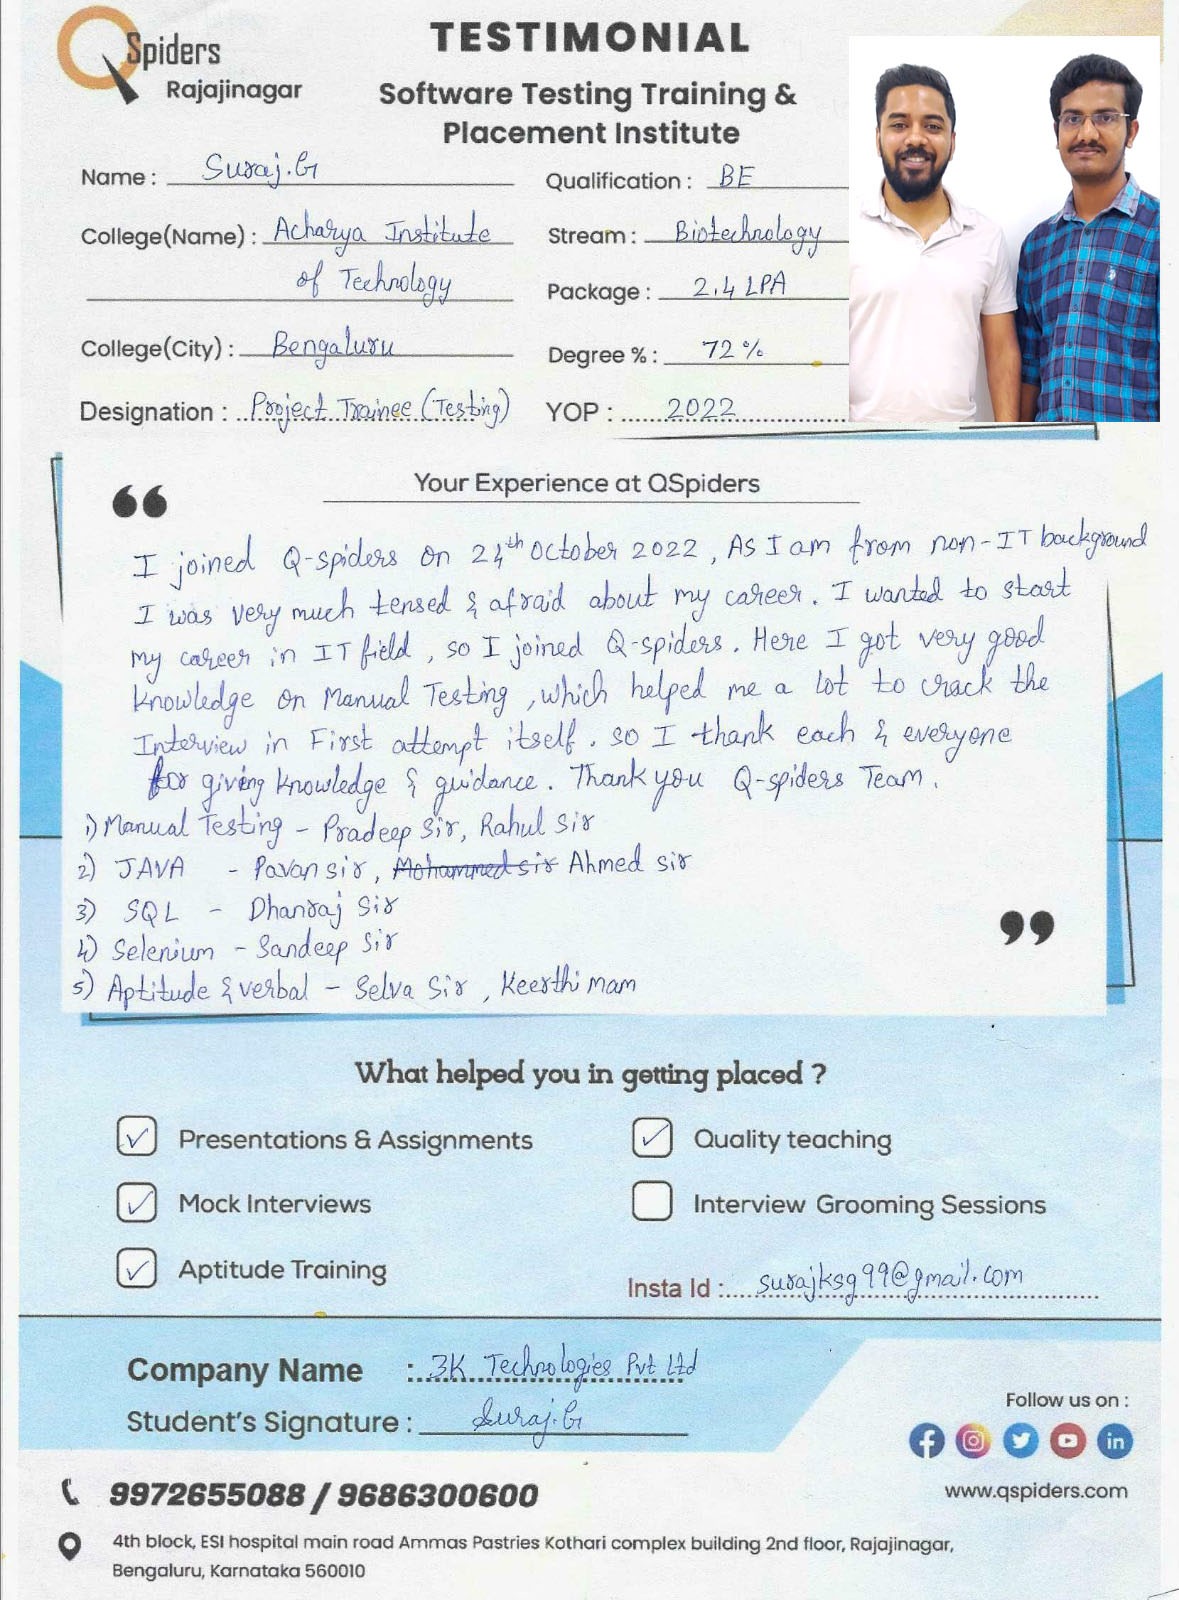 Q Spiders
Rajajinagar
TESTIMONIAL
Software Testing Training &
Placement Institute
Name : Suraj.G
Qualification : BE
College(Name) : Acharya Institute
of Technology
Stream : Biotechnology
Package : 2.4 LPA
College(City) : Bengaluru
Degree % : 72 %
Designation : Project Trainee (Testing)
YOP : 2022
Your Experience at QSpiders
I joined Q-spiders on 24th October 2022, As I am from non-IT background
I was very much tensed & afraid about my career. I wanted to start
my career in IT field, so I joined Q-spiders. Here I got very good
knowledge on Manual Testing, which helped me a lot to crack the
Interview in First attempt itself. so I thank each & everyone
for giving knowledge & guidance. Thank you Q-spiders Team.
1) Manual Testing - Pradeep Sir, Rahul Sir
2) JAVA - Pavan sir, Mohammed sir Ahmed sir
3) SQL - Dhanraj Sir
4) Selenium - Sandeep Sir
5) Aptitude & verbal - Selva Sir, Keerthi mam
What helped you in getting placed ?
Presentations & Assignments
Quality teaching
Mock Interviews
Interview Grooming Sessions
Aptitude Training
Insta Id : surajksg99@gmail.com
Company Name : 3K Technologies Pvt Ltd
Student's Signature : Suraj.G
Follow us on :
9972655088 / 9686300600
www.qspiders.com
4th block, ESI hospital main road Ammas Pastries Kothari complex building 2nd floor, Rajajinagar,
Bengaluru, Karnataka 560010